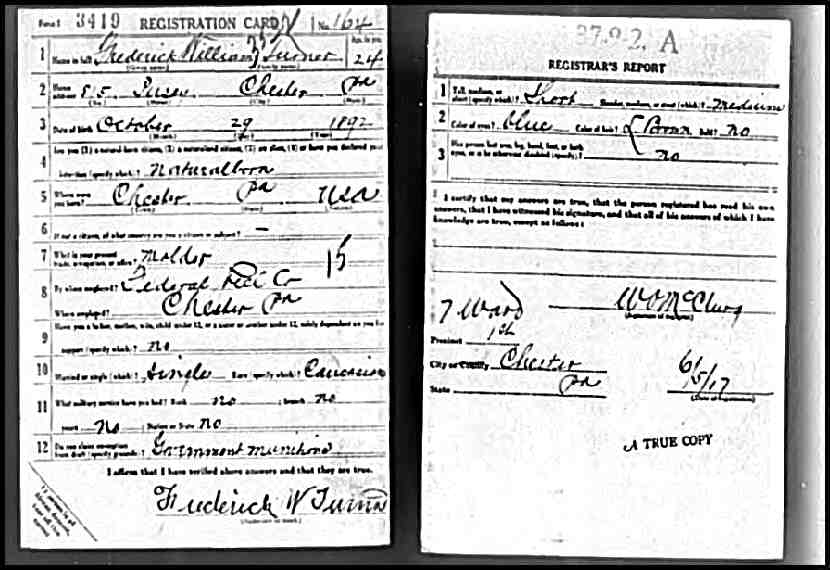 Form 1 3419 REGISTRATION CARD No. 164
1 Name in full Frederick William Turner Age, in yrs. 24
2 Home address Chester Pa
3 Date of birth October 29 1892
4 Are you (1) a natural-born citizen, (2) a naturalized citizen, (3) an alien, (4) or have you declared your
intention (specify which)? Natural born
5 Where were you born? Chester Pa USA
6 If not a citizen, of what country are you a citizen or subject? —
7 What is your present trade, occupation, or office? Molder 15
8 By whom employed? Federal Co
Where employed? Chester Pa
9 Have you a father, mother, wife, child under 12, or a sister or brother under 12, solely dependent on you for
support (specify which)? No
10 Married or single (which)? Single Race (specify which)? Caucasian
11 What military service have you had? Rank No ; branch No
years No Nation or State No
12 Do you claim exemption from draft (specify grounds)? Government munitions
I affirm that I have verified above answers and that they are true.
Frederick W Turner
37-9-2. A
REGISTRAR'S REPORT
1 Tall, medium, or short (specify which)? Short Slender, medium, or stout (which)? Medium
2 Color of eyes? Blue Color of hair? L Brown Bald? No
3 Has person lost arm, leg, hand, foot, or both eyes, or is he otherwise disabled (specify)? No
I certify that my answers are true, that the person registered has read his own
answers, that I have witnessed his signature, and that all of his answers of which I have
knowledge are true, except as follows:
W O McClurg
(Signature of registrar)
7 Ward
Precinct 1th
City or County Chester
State Pa
6/5/17
(Date of registration)
A TRUE COPY